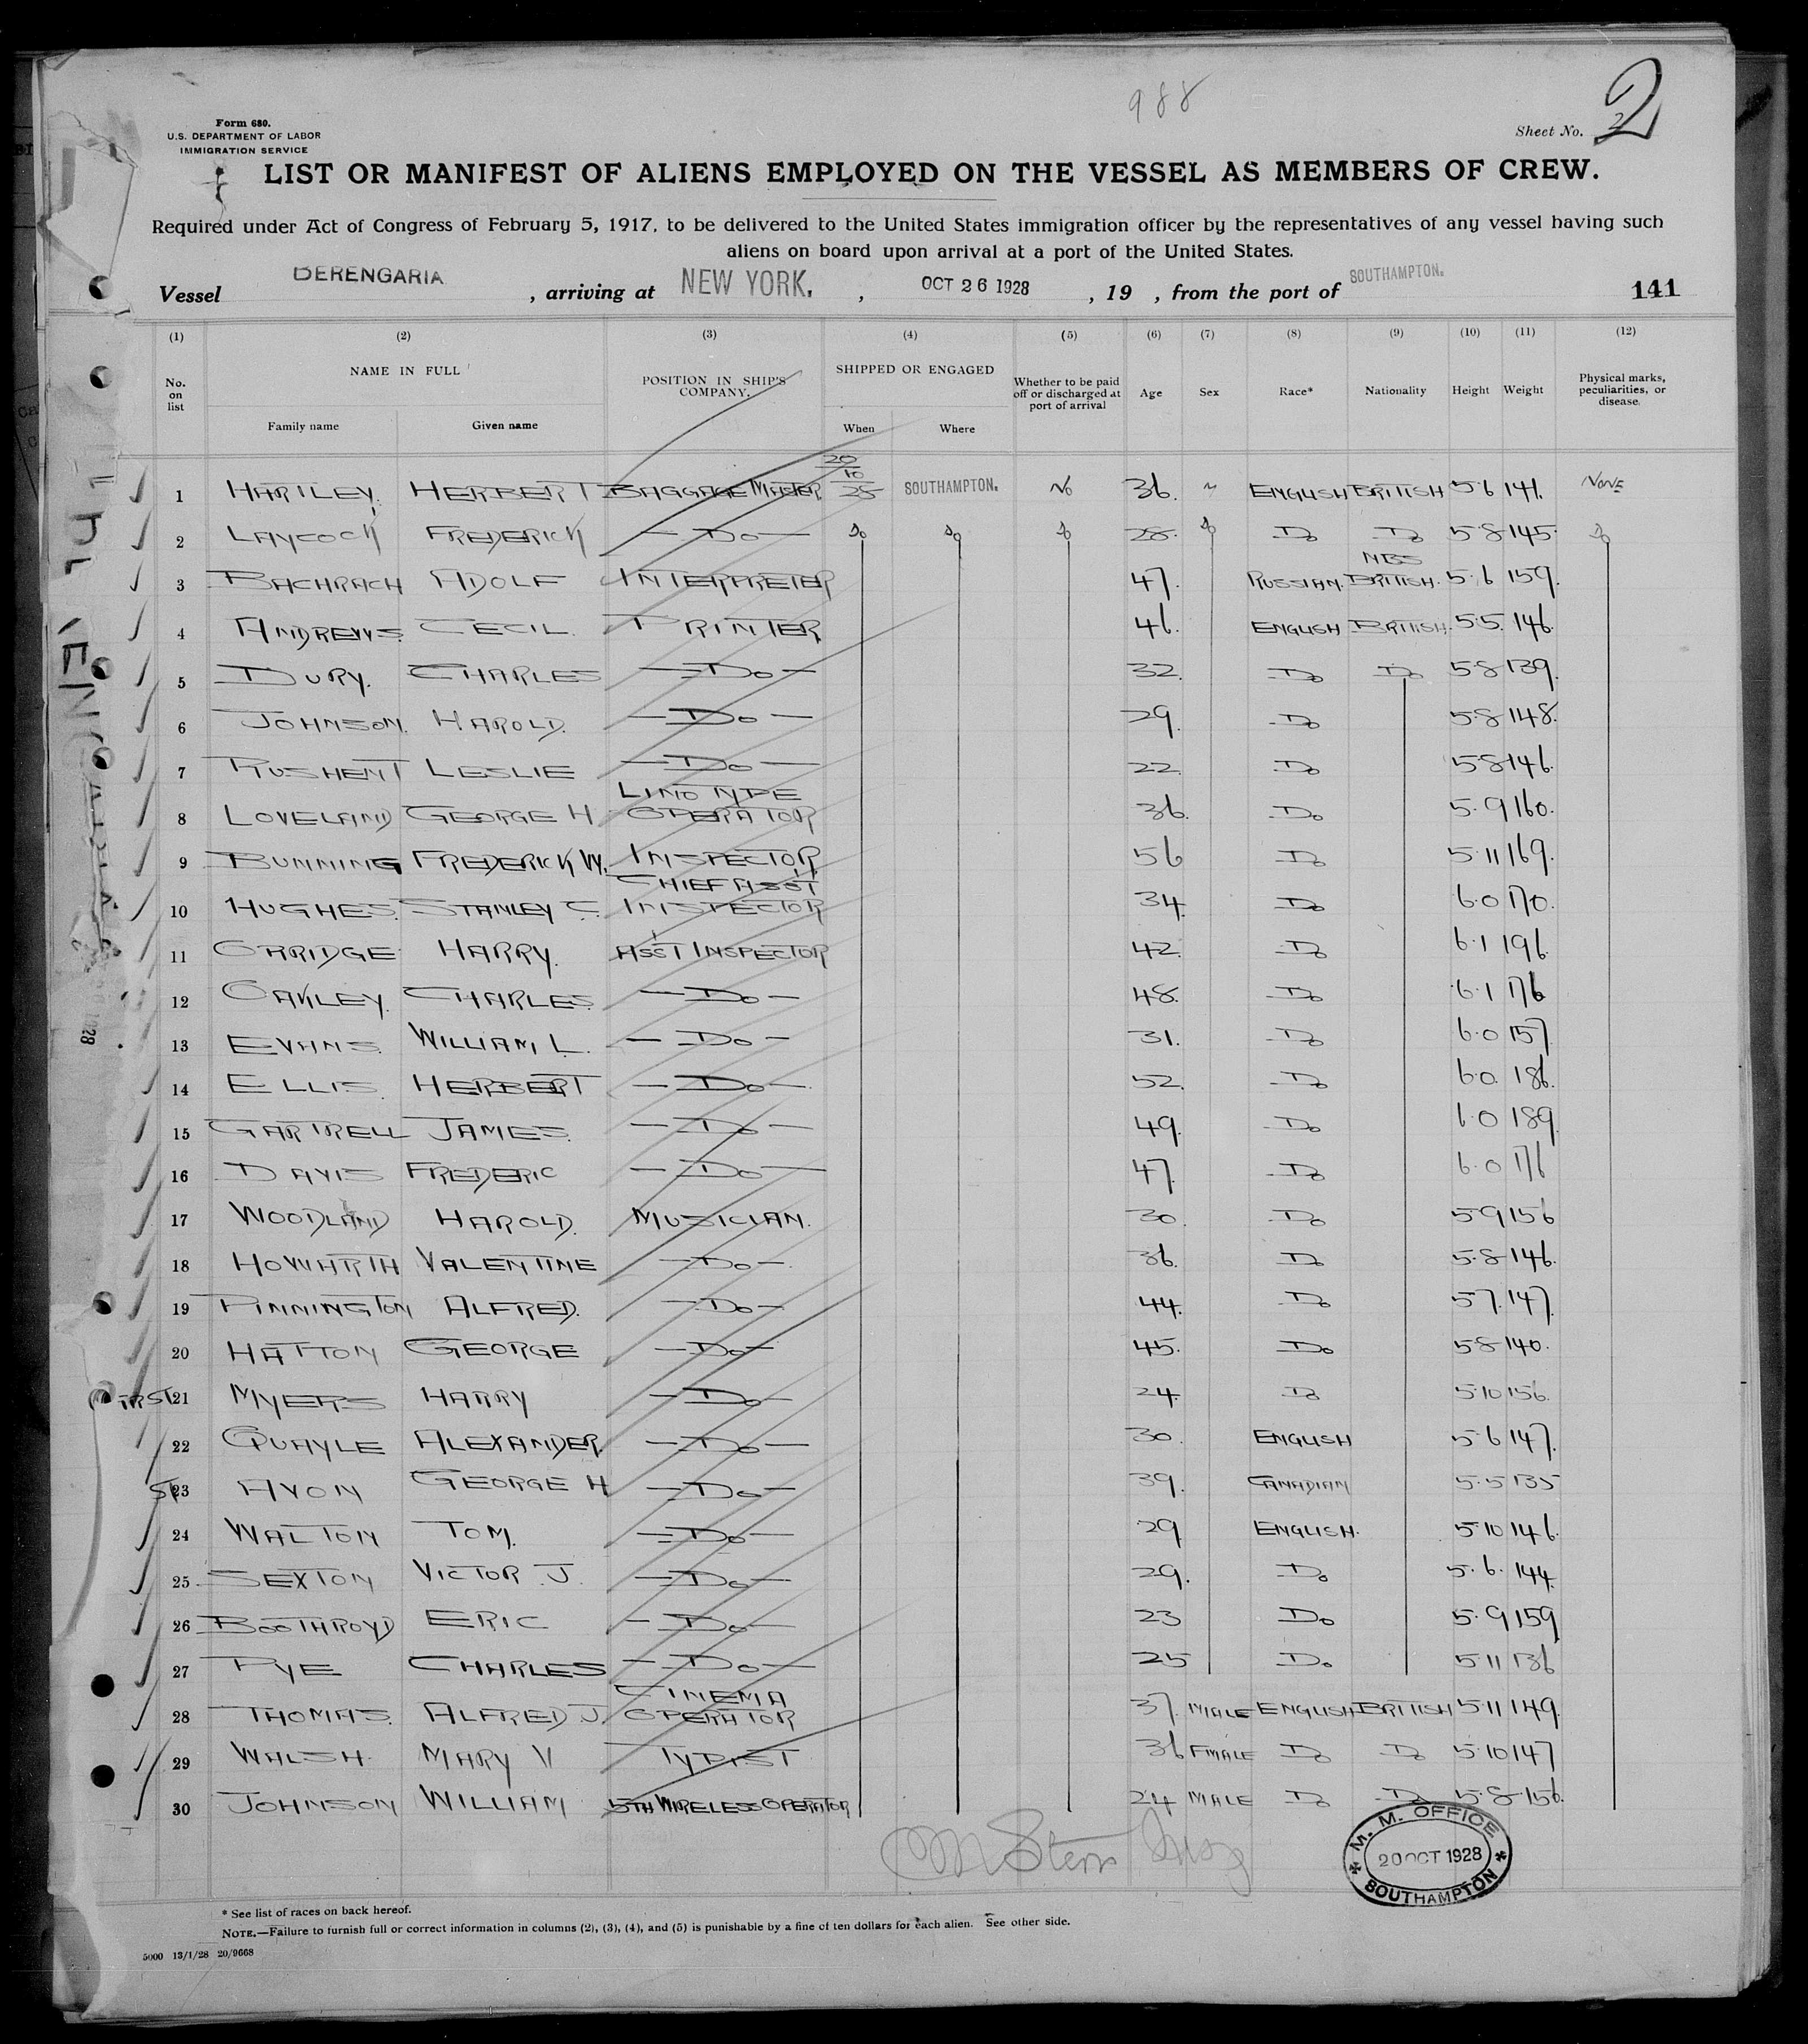 988
Form 680.
U.S. DEPARTMENT OF LABOR
IMMIGRATION SERVICE
Sheet No. 2
2
LIST OR MANIFEST OF ALIENS EMPLOYED ON THE VESSEL AS MEMBERS OF CREW.
Required under Act of Congress of February 5, 1917, to be delivered to the United States immigration officer by the representatives of any vessel having such
aliens on board upon arrival at a port of the United States.
Vessel BERENGARIA, arriving at NEW YORK, , OCT 26 1928, 19 , from the port of SOUTHAMPTON. 141
(1) (2) (3) (4) (5) (6) (7) (8) (9) (10) (11) (12)
No. on list NAME IN FULL POSITION IN SHIP'S COMPANY. SHIPPED OR ENGAGED Whether to be paid off or discharged at port of arrival Age Sex Race* Nationality Height Weight Physical marks, peculiarities, or disease.
Family name Given name When Where
1 HARTLEY. HERBERT BAGGAGE MASTER 20/10/28 SOUTHAMPTON. No 36. M ENGLISH BRITISH 5.6 141. NONE
2 LAYCOCK FREDERICK — Do — Do Do Do 28. Do Do Do 5.8 145. Do
3 BACHRACH ADOLF INTERPRETER 47. RUSSIAN. NBS BRITISH. 5.6 159.
4 ANDREWS. CECIL. PRINTER 46. ENGLISH BRITISH. 5.5. 146.
5 DURY. CHARLES — Do — 32. Do Do 5.8 139.
6 JOHNSON. HAROLD. — Do — 29. Do 5.8 148.
7 RUSHENT LESLIE — Do — 22. Do 5.8 146.
8 LOVELAND GEORGE H LINOTYPE OPERATOR 36. Do 5.9 160.
9 BUNNING FREDERICK W. INSPECTOR 56 Do 5.11 169.
10 HUGHES. STANLEY C. CHIEF ASST INSPECTOR 34. Do 6.0 170.
11 ORRIDGE HARRY. ASST INSPECTOR 42. Do 6.1 196.
12 OAKLEY. CHARLES. — Do — 48. Do 6.1 176
13 EVANS. WILLIAM L. — Do — 31. Do 6.0 157
14 ELLIS. HERBERT — Do — 52. Do 6.0. 186.
15 GARTRELL JAMES. — Do — 49. Do 6.0 189.
16 DAVIS FREDERIC — Do — 47. Do 6.0 176
17 WOODLAND HAROLD. MUSICIAN. 30. Do 5.9 156
18 HOWARTH VALENTINE — Do — 36. Do 5.8 146.
19 PINNINGTON ALFRED. — Do — 44. Do 5.7. 147.
20 HATTON GEORGE — Do — 45. Do 5.8 140.
21 MYERS HARRY — Do — 24. Do 5.10 156.
22 QUAYLE ALEXANDER. — Do — 30. ENGLISH 5.6 147.
23 AVON GEORGE H — Do — 39. CANADIAN 5.5 135
24 WALTON TOM. — Do — 29 ENGLISH. 5.10 146.
25 SEXTON VICTOR J. — Do — 29. Do 5.6. 144.
26 BOOTHROYD ERIC — Do — 23 Do 5.9 159
27 PYE CHARLES — Do — 25 Do 5.11 136
28 THOMAS. ALFRED J. CINEMA OPERATOR 37. MALE ENGLISH BRITISH 5.11 149.
29 WALSH. MARY V TYPIST 36 FMALE Do Do 5.10 147
30 JOHNSON WILLIAM 5TH WIRELESS OPERATOR 24 MALE Do Do 5.8 156.
M. M. OFFICE
20 OCT 1928
SOUTHAMPTON
* See list of races on back hereof.
NOTE.—Failure to furnish full or correct information in columns (2), (3), (4), and (5) is punishable by a fine of ten dollars for each alien. See other side.
5000 13/1/28 20/9668